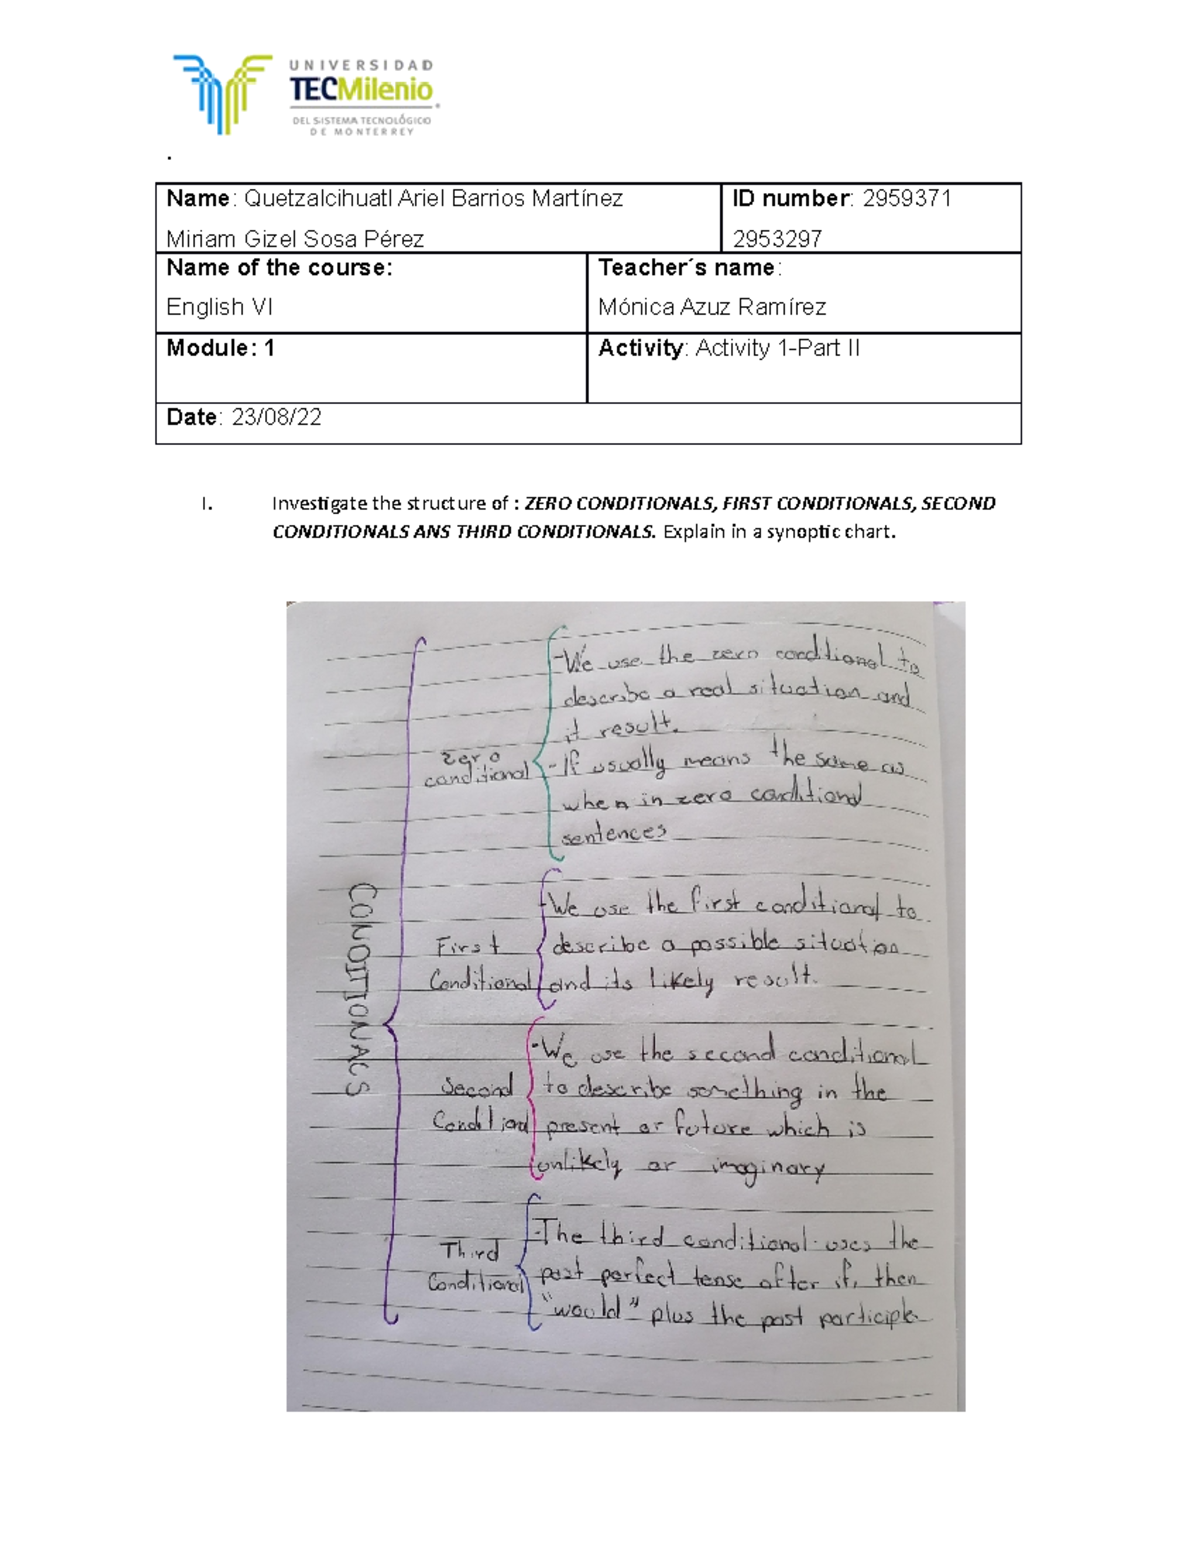 UNIVERSIDAD
TECMilenio
DEL SISTEMA TECNOLÓGICO
DE MONTERREY
.
Name: Quetzalcihuatl Ariel Barrios Martínez
Miriam Gizel Sosa Pérez
ID number: 2959371
2953297
Name of the course:
English VI
Teacher´s name:
Mónica Azuz Ramírez
Module: 1
Activity: Activity 1-Part II
Date: 23/08/22
I. Investigate the structure of : ZERO CONDITIONALS, FIRST CONDITIONALS, SECOND
CONDITIONALS ANS THIRD CONDITIONALS. Explain in a synoptic chart.
CONDITIONALS
Zero
conditional
-We use the zero conditional to
describe a real situation and
it result.
-If usually means the same as
when in zero conditional
sentences
First
Conditional
-We use the first conditional to
describe a possible situation
and its likely result.
Second
Conditional
-We use the second conditional
to describe something in the
present or future which is
unlikely or imaginary
Third
Conditional
-The third conditional uses the
past perfect tense after if, then
"would" plus the past participle